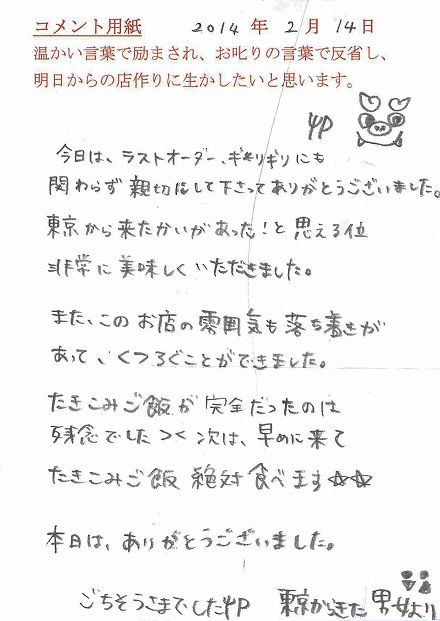 コメント用紙 2014 年 2 月 14日
温かい言葉で励まされ、お叱りの言葉で反省し、
明日からの店作りに生かしたいと思います。
今日は、ラストオーダー、ギリギリにも
関わらず 親切にして下さってありがとうございました。
東京から来たかいがあった!と思える位
非常に美味しくいただきました。
また、このお店の雰囲気も落ち着きが
あって、くつろぐことができました。
たきこみご飯が完全だったのは
残念でした つく 次は、早めに来て
たきこみご飯 絶対 食べます☆☆
本日は、ありがとうございました。
ごちそうさまでした 東京からきた 男女より